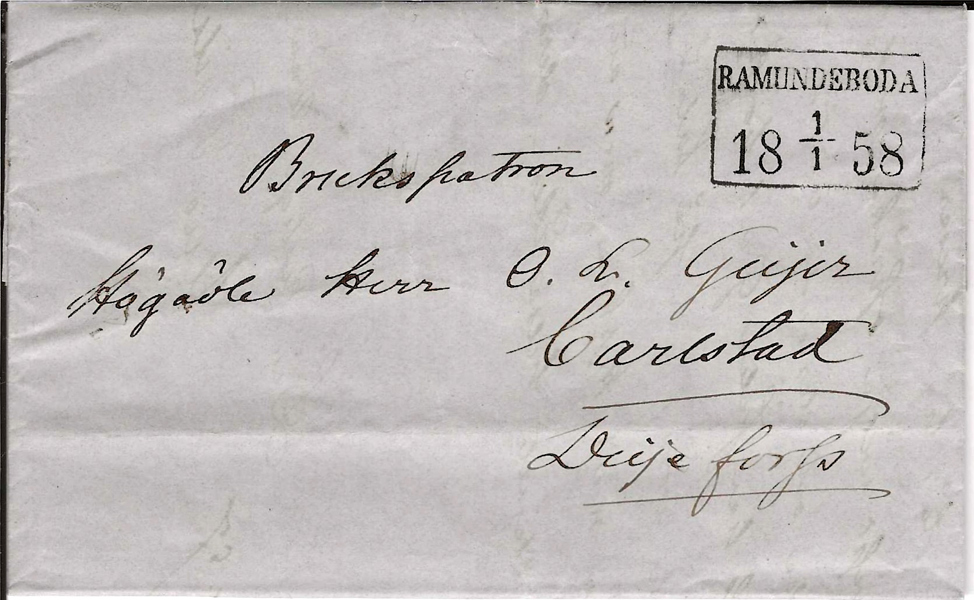 RAMUNDEBODA
18 1/1 58
Brukspatron
Högädle Herr O. L. Geijer
Carlstad
Deije forss